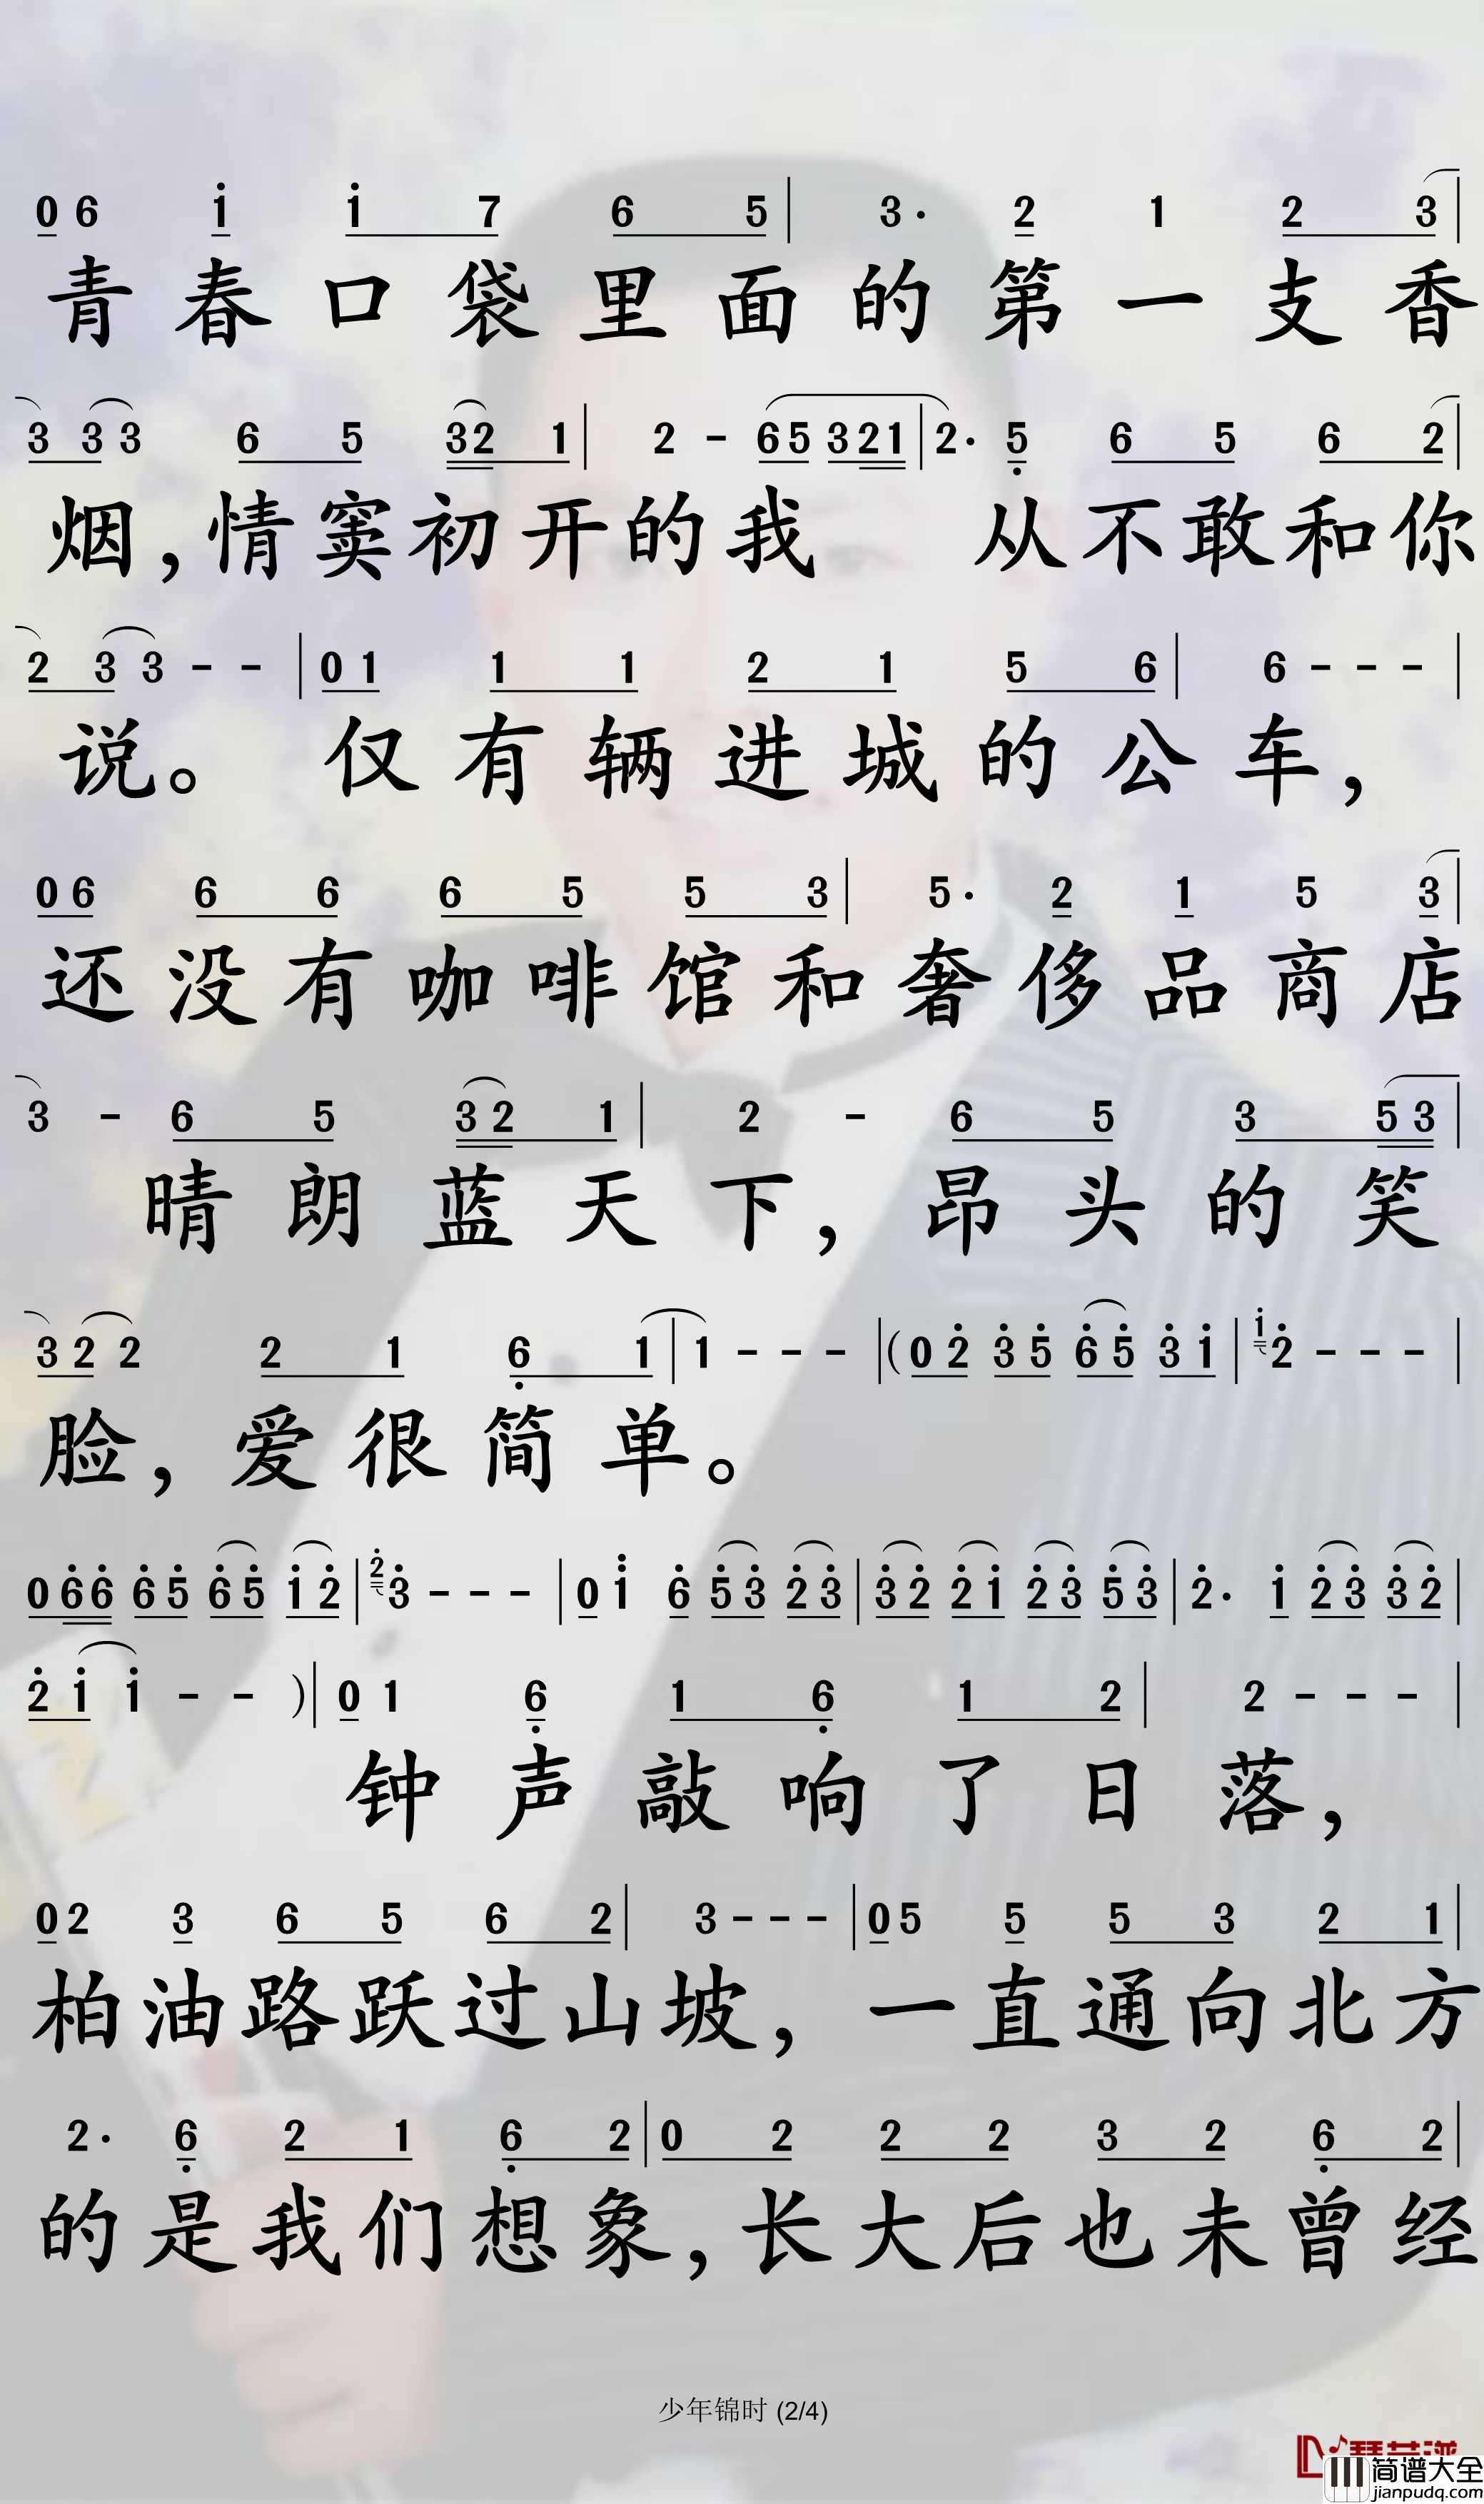 0 6 1 1 7 6 5 | 3· 2 1 2 3 |
青春口袋里面的第一支香
3 3 3 6 5 3 2 1 | 2 - 6 5 3 2 1 | 2· 5 6 5 6 2 |
烟,情窦初开的我 从不敢和你
2 3 3 - - | 0 1 1 1 2 1 5 6 | 6 - - - |
说。仅有辆进城的公车,
0 6 6 6 6 5 5 3 | 5· 2 1 5 3 |
还没有咖啡馆和奢侈品商店
3 - 6 5 3 2 1 | 2 - 6 5 3 5 3 |
晴朗蓝天下,昂头的笑
3 2 2 2 1 6 1 | 1 - - - | (0 2 3 5 6 5 3 1 | 1 2 - - - |
脸,爱很简单。
0 6 6 6 5 6 5 1 2 | 2 3 - - - | 0 1 6 5 3 2 3 | 3 2 2 1 2 3 5 3 | 2· 1 2 3 3 2 |
2 1 1 - - ) | 0 1 6 1 6 1 2 | 2 - - - |
钟声敲响了日落,
0 2 3 6 5 6 2 | 3 - - - | 0 5 5 5 3 2 1 |
柏油路跃过山坡,一直通向北方
2· 6 2 1 6 2 | 0 2 2 2 3 2 6 2 |
的是我们想象,长大后也未曾经
少年锦时 (2/4)
简谱大全
jianpudq.com